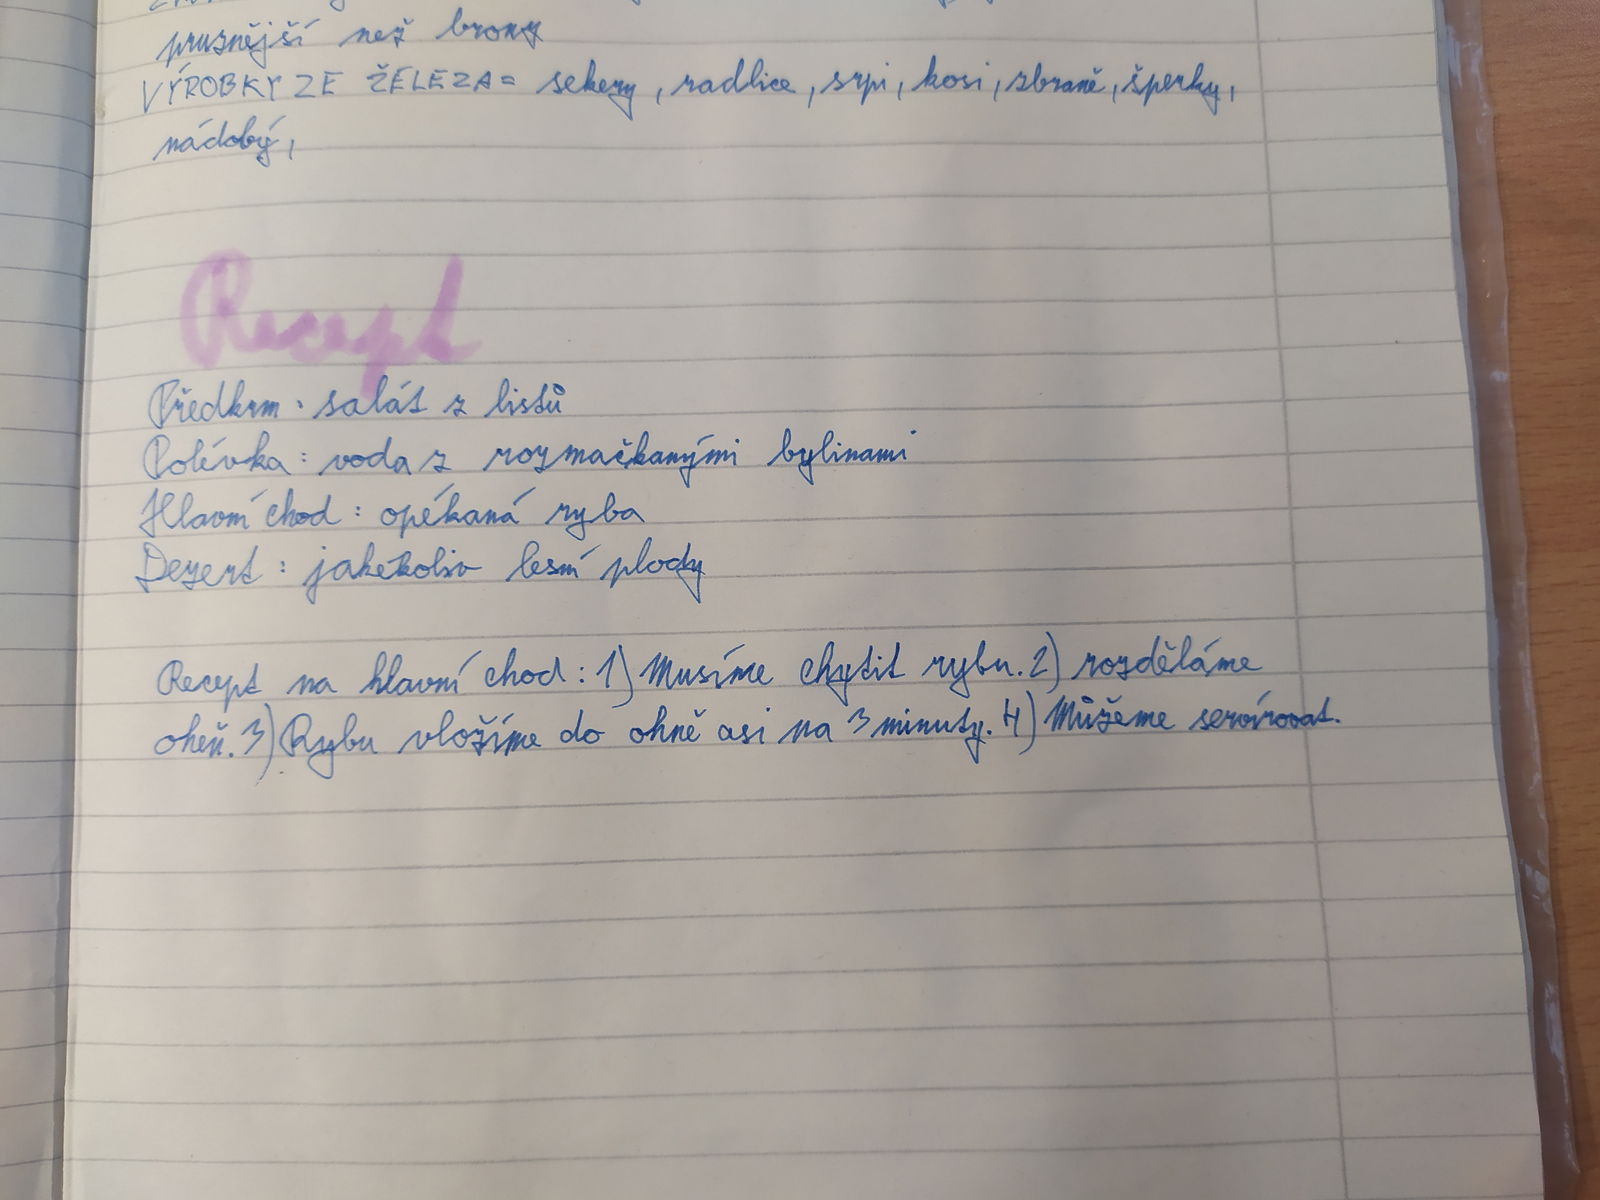 pruznější než brony
VÝROBKY ZE ŽELEZA = sekery, radlice, srpi, kosi, zbraně, šperky,
nádobý,
Recept
Předkrm: salát z listů
Polévka: voda z rozmačkanými bylinami
Hlavní chod: opékaná ryba
Dezert: jakékoliv lesní plody
Recept na hlavní chod: 1) Musíme chytit rybu. 2) rozděláme
oheň. 3) Rybu vložíme do ohně asi na 3 minuty. 4) Můžeme servírovat.